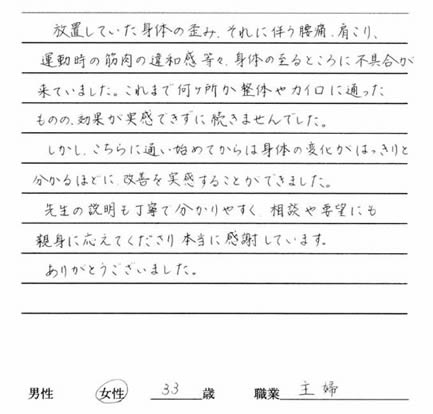 放置していた身体の歪み、それに伴う腰痛、肩こり、
運動時の筋肉の違和感等々、身体の至るところに不具合が
来ていました。これまで何ヶ所か整体やカイロに通った
ものの、効果が実感できずに続きませんでした。
しかし、こちらに通い始めてからは身体の変化がはっきりと
分かるほどに、改善を実感することができました。
先生の説明も丁寧で分かりやすく、相談や要望にも
親身に応えてくださり本当に感謝しています。
ありがとうございました。
男性 女性 33歳 職業 主婦